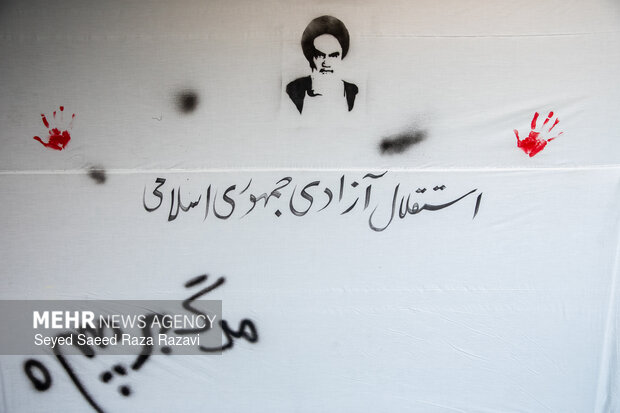 استقلال آزادی جمهوری اسلامی
مرگ بر شاه
MEHR NEWS AGENCY
Seyed Saeed Raza Razavi